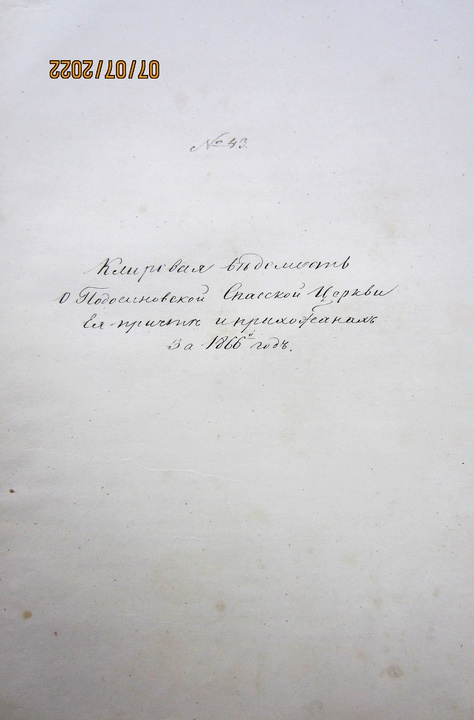 07/07/2022
№ 43.
Клировая вѣдомость
О Подосиновской Спасской Церкви
Ея причтѣ и прихожанахъ
За 1866й годъ.